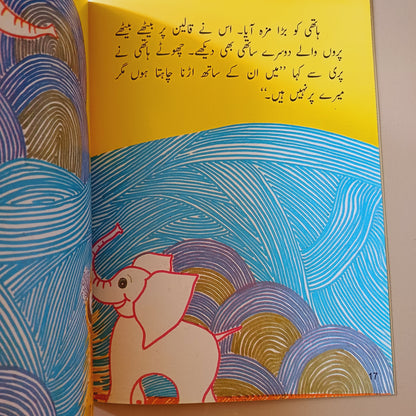 ہاتھی کو بڑا مزہ آیا۔ اس نے قالین پر بیٹھے بیٹھے
پروں والے دوسرے ساتھی بھی دیکھے۔ چھوٹے ہاتھی نے
پری سے کہا ”میں ان کے ساتھ اڑنا چاہتا ہوں مگر
میرے پر نہیں ہیں۔“
17